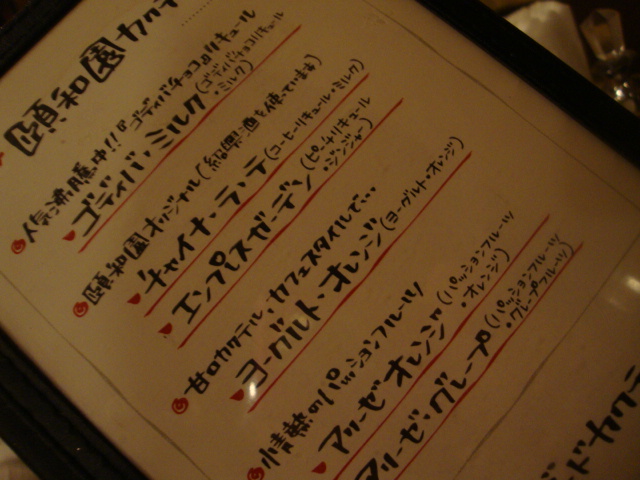 頤和園カクテ
人気沸騰中!! のゴディバチョコのリキュール
ゴディバ・ミルク(ゴディバチョコリキュール・ミルク)
頤和園オリジナル(紹興酒を使っています)
チャイナ・ラテ(コーヒーリキュール・ミルク)
エンプレスガーデン(ピーチリキュール・ジンジャー)
甘口カクテル、カフェスタイルで…
ヨーグルト・オレンジ(ヨーグルト・オレンジ)
情熱のパッションフルーツ
アリーゼ・オレンジ(パッションフルーツ・オレンジ)
アリーゼ・グレープ(パッションフルーツ・グレープフルーツ)
ドカク